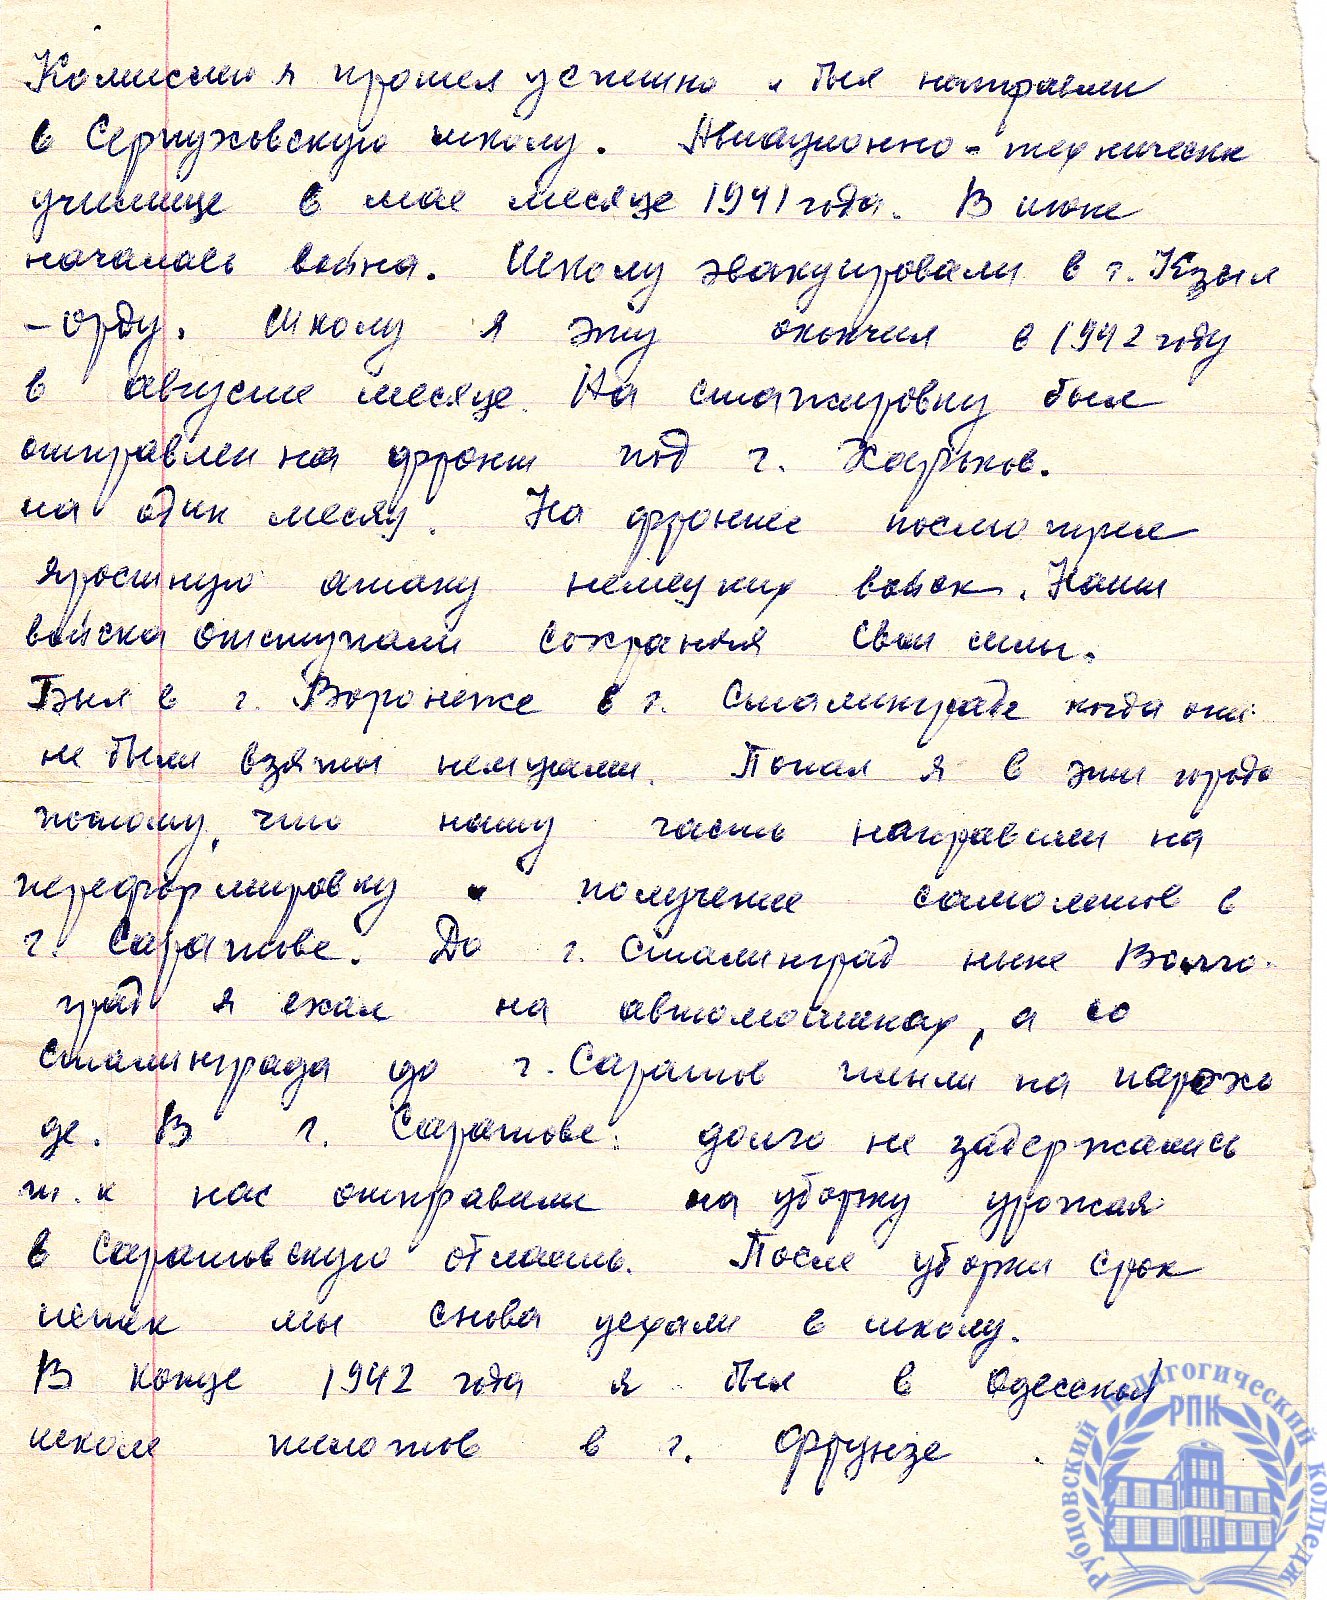 Комиссию я прошел успешно и был направлен
в Серпуховскую школу. Авиационно-техническ
училище в мае месяце 1941 года. В июне
началась война. Школу эвакуировали в г. Кзыл
-орду. Школу я эту окончил в 1942 году
в августе месяце. На стажировку был
отправлен на фронт под г. Харьков.
на один месяц. На фронте посмотрел
яростную атаку немецких войск. Наши
войска отступали сохраняя свои силы.
Был в г. Воронеже в г. Сталинграде когда они
не были взяты немцами. Попал я в эти города
потому, что нашу часть направили на
переформировку и получение самолетов в
г. Саратове. До г. Сталинград ныне Волго-
град я ехал на автомашинах, а со
сталинграда до г. Саратов плыли на парохо
де. В г. Саратове. долго не задержались
т.к нас отправили на уборку урожая
в Саратовскую область. После уборки срок
шесть мы снова уехали в школу.
В конце 1942 года я был в Одесской
школе пилотов в г. Фрунзе.
РУБЦОВСКИЙ ПЕДАГОГИЧЕСКИЙ КОЛЛЕДЖ
РПК